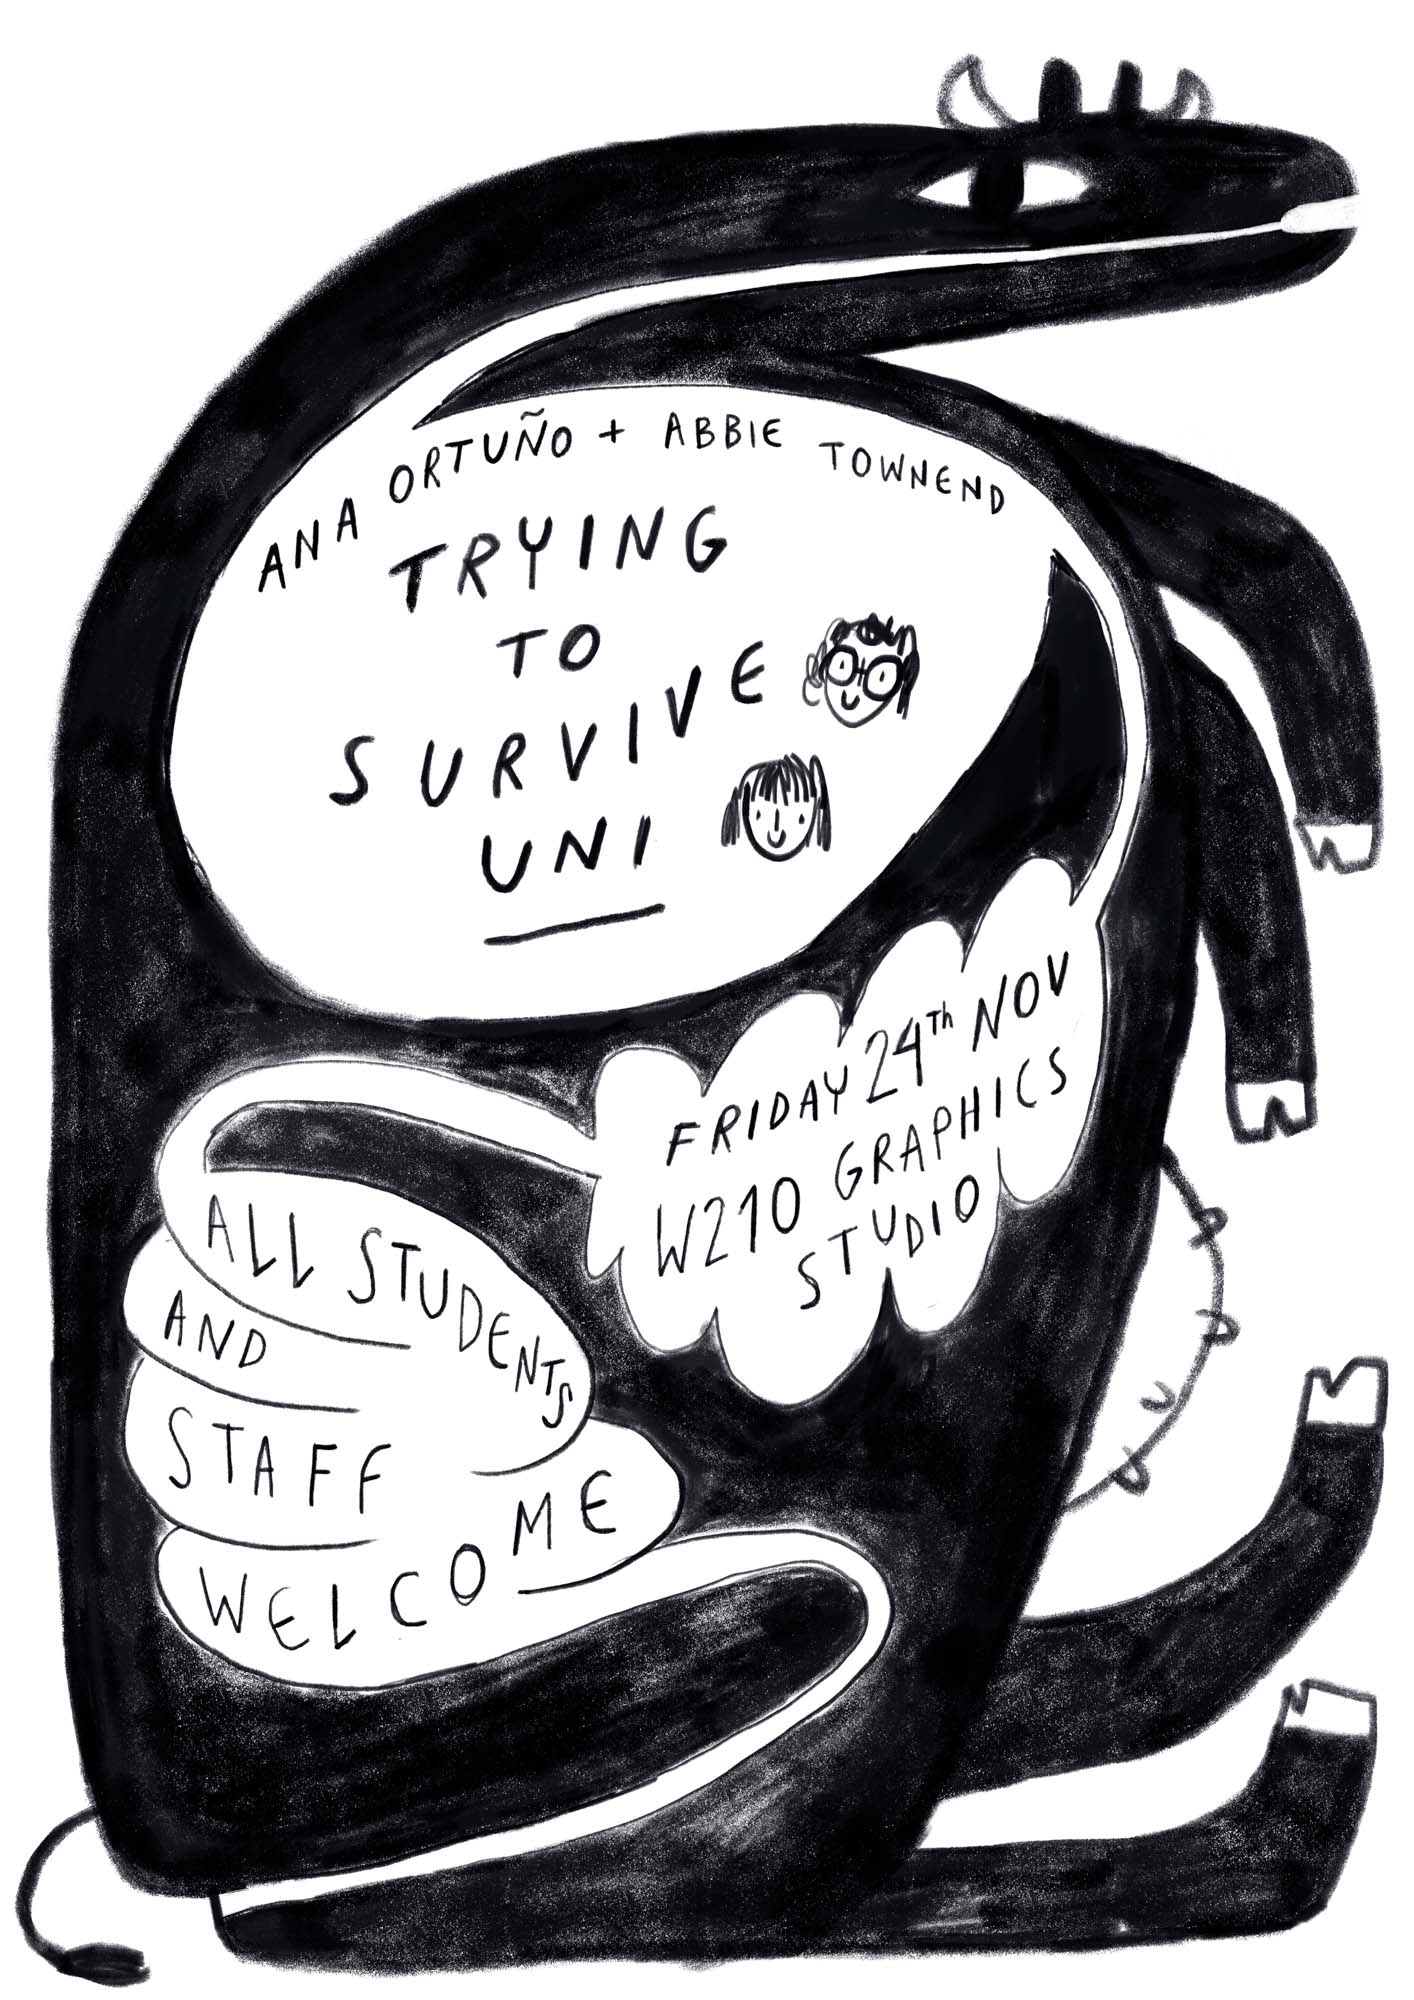 ANA ORTUÑO + ABBIE TOWNEND
TRYING
TO
SURVIVE
UNI
FRIDAY 24th NOV
W210 GRAPHICS
STUDIO
ALL STUDENTS
AND
STAFF
WELCOME